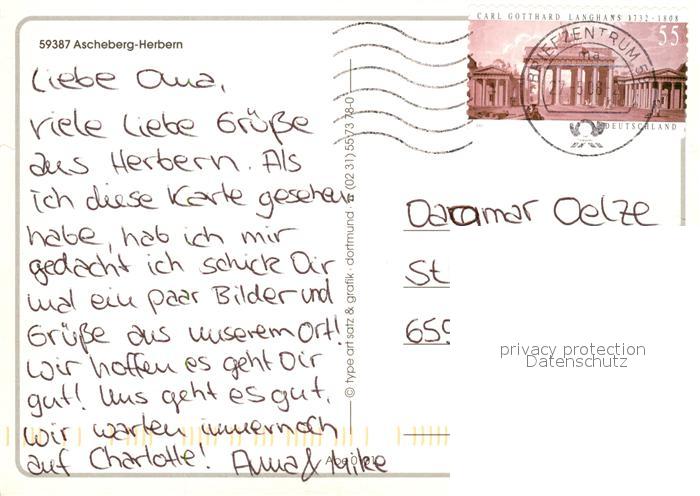 CARL GOTTHARD LANGHANS 1732-1808
55
BRIEFZENTRUM
DEUTSCHLAND
59387 Ascheberg-Herbern
Liebe Oma,
viele liebe Grüße
aus Herbern. Als
ich diese Karte gesehen
habe, hab ich mir
gedacht ich schick Dir
mal ein paar Bilder und
Grüße aus unserem Ort!
Wir hoffen es geht Dir
gut! Uns geht es gut,
wir warten immernoch
auf Charlotte! Anna & Mike
© type art satz & grafik · dortmund ☎ (02 31) 55 73 78-0
Dagmar Oelze
St
659
privacy protection
Datenschutz